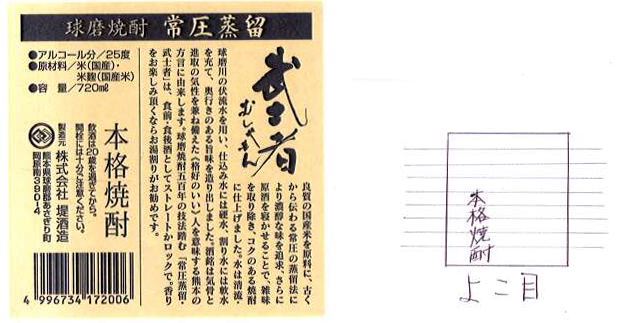 球磨焼酎 常圧蒸留
●アルコール分/25度
●原材料/米(国産)・
米麹(国産米)
●容 量/720mℓ
武士者
むしゃもん
良質の国産米を原料に、古く
から伝わる常圧の蒸留法に
より濃醇な味を追求、さらに
原酒を寝かせることで、雑味
を取り除き、コクのある焼酎
に仕上げました。水は清流・
球磨川の伏流水を用い、仕込み水には硬水、割り水には軟水
を充て、奥行きのある旨味を造り出しました。酒銘は気骨と
進取の気性を兼ね備えた《格好のいい》人を意味する熊本の
方言に由来します。球磨焼酎五百年の技法踏む「常圧蒸留・
武士者」は、食前・食後酒としてストレートかロックで。香り
をお楽しみ頂くならお湯割りがお勧めです。
本格焼酎
飲酒は20歳を過ぎてから。
開栓には十分ご注意ください。
製造元 株式会社 堤酒造
熊本県球磨郡あさぎり町
岡原南390-4
4 996734 172006
本格焼酎
よこ目